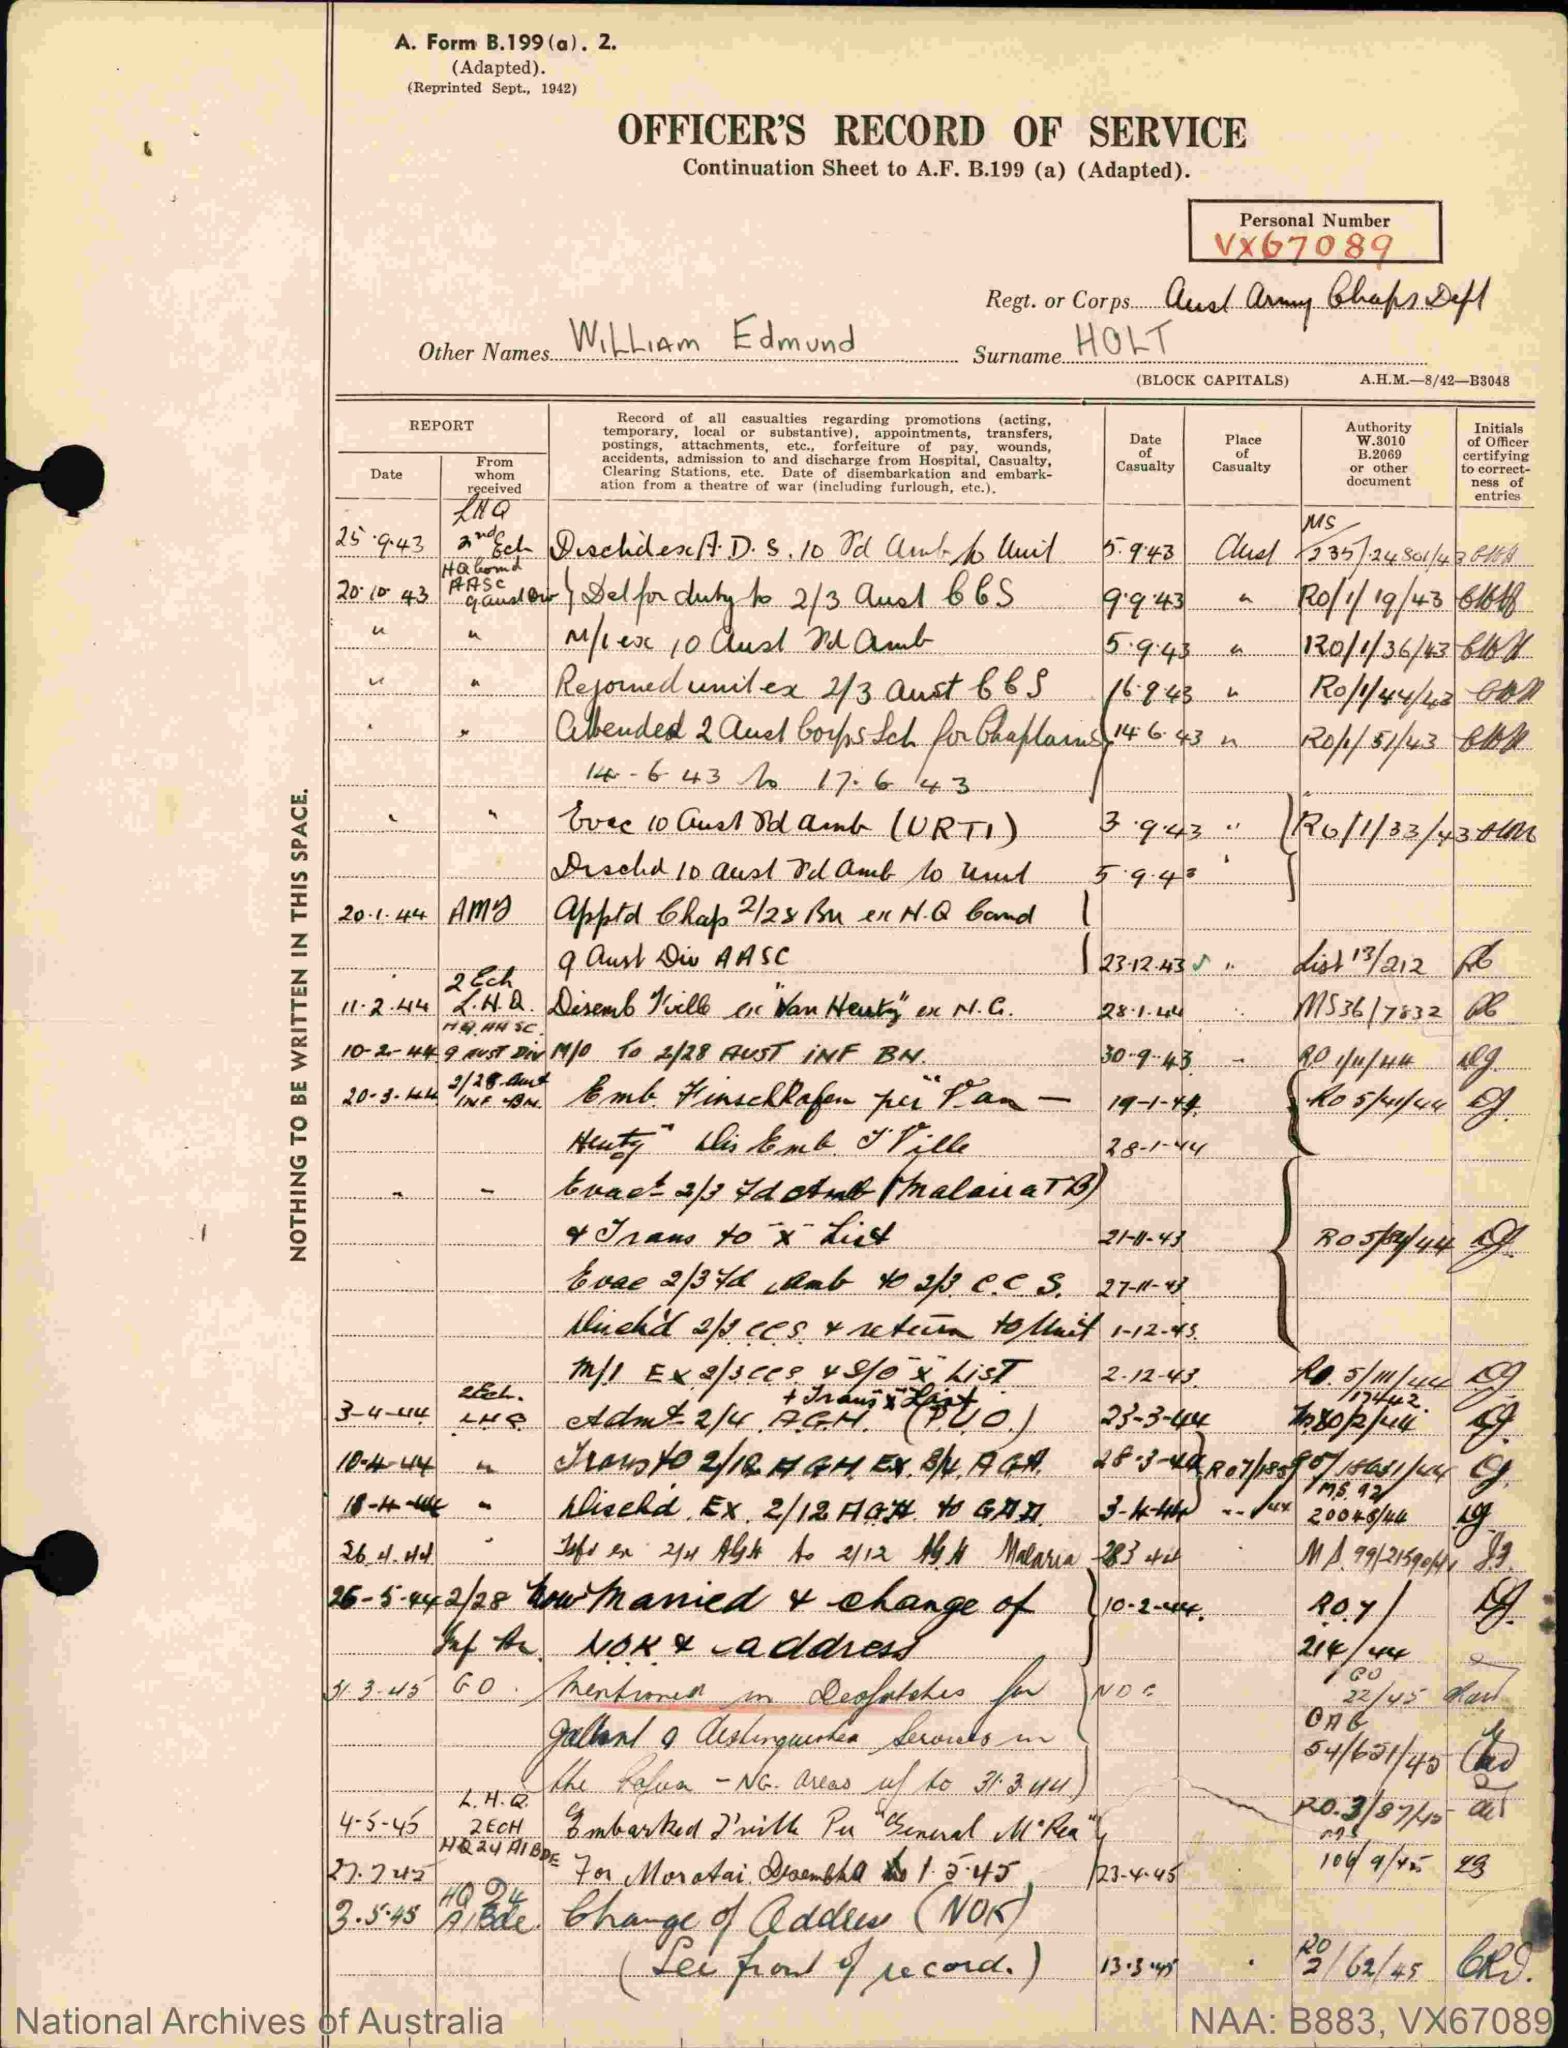 A. Form B.199 (a). 2.
(Adapted).
(Reprinted Sept., 1942)
OFFICER'S RECORD OF SERVICE
Continuation Sheet to A.F. B.199 (a) (Adapted).
Personal Number
VX67089
Regt. or Corps Aust Army Chaps Dept
Other Names WILLIAM Edmund Surname HOLT
(BLOCK CAPITALS) A.H.M.—8/42—B3048
REPORT
Date
From whom received
Record of all casualties regarding promotions (acting, temporary, local or substantive), appointments, transfers, postings, attachments, etc., forfeiture of pay, wounds, accidents, admission to and discharge from Hospital, Casualty, Clearing Stations, etc. Date of disembarkation and embarkation from a theatre of war (including furlough, etc.).
Date of Casualty
Place of Casualty
Authority W.3010 B.2069 or other document
Initials of Officer certifying to correctness of entries
NOTHING TO BE WRITTEN IN THIS SPACE.
LHQ MS
25.9.43 2nd Ech Dischd ex A.D.S. 10 Fd Amb to Unit 5.9.43 Aust 235/24801/43
HQ Comd
20.10.43 AASC 9 Aust Div Det for duty to 2/3 Aust CCS 9.9.43 " RO/1/19/43
" " M/I ex 10 Aust Fd Amb 5.9.43 " RO/1/36/43
" " Rejoined unit ex 2/3 Aust CCS 16.9.43 " RO/1/44/43
" " Attended 2 Aust Corps Sch for Chaplains 14.6.43 " RO/1/51/43
14-6-43 to 17.6.43
" " Evac 10 Aust Fd Amb (URTI) 3.9.43 " RO/1/33/43
Dischd 10 Aust Fd Amb to Unit 5.9.43 "
20.1.44 Apptd Chap 2/28 Bn ex H.Q Comd
9 Aust Div AASC 23.12.43 " List 13/212
2 Ech
11.2.44 L.H.Q. Disemb T'ville ex "Van Heutz" ex N.G. 28.1.44 MS36/7832
HQ AASC
10-2-44 9 AUST Div M/O TO 2/28 AUST INF BN. 30-9-43 RO 1/11/44
20-3-44 2/28 Aust INF BN. Emb. Finschhafen per "Van — 19-1-44 RO 5/41/44
Heutz" Dis Emb. T'Ville 28-1-44
" " Evact 2/3 Fd Amb (Malaria TB)
& Trans to "X" List 21-11-43
Evac 2/3 Fd Amb to 2/3 C.C.S. 27-11-43
Disch'd 2/3 CCS & return to Unit 1-12-43
M/I EX 2/3 CCS & S/O "X" LIST 2-12-43 RO. 5/111/44
2 Ech. + Trans "X" List 17442
3-4-44 L.H.Q. Admt 2/4 A.G.H. (P.U.O.) 23-3-44
10-4-44 " Trans to 2/12 AGH EX. 2/4 AGH. 28-3-44
MS 92
18-4-44 " Disch'd EX. 2/12 AGH to GDD. 3-4-44 20048/44
26.4.44 " Tsfd ex 2/4 AGH to 2/12 AGH Malaria 28 3 44
26-5-44 2/28 Now Married & change of 10-2-44. RO 7/
Inf Bn. N.O.K & address 214/44
31.3.45 GO Mentioned in Despatches for GO 22/45
Gallant & distinguished services in 54/651/45
the Papua - NG. areas up to 31.3.44)
L.H.Q. RO.3/87/45
4-5-45 2ECH Embarked T'ville Per "General McRea"
HQ 24 AI BDE
27.7.45 For Morotai Disembkd 1.5.45 23-4-45
HQ 24
3.5.45 AI Bde. Change of Address (NOK)
(See front of record.) 13.3.45 RO 2/62/45
National Archives of Australia NAA: B883, VX67089